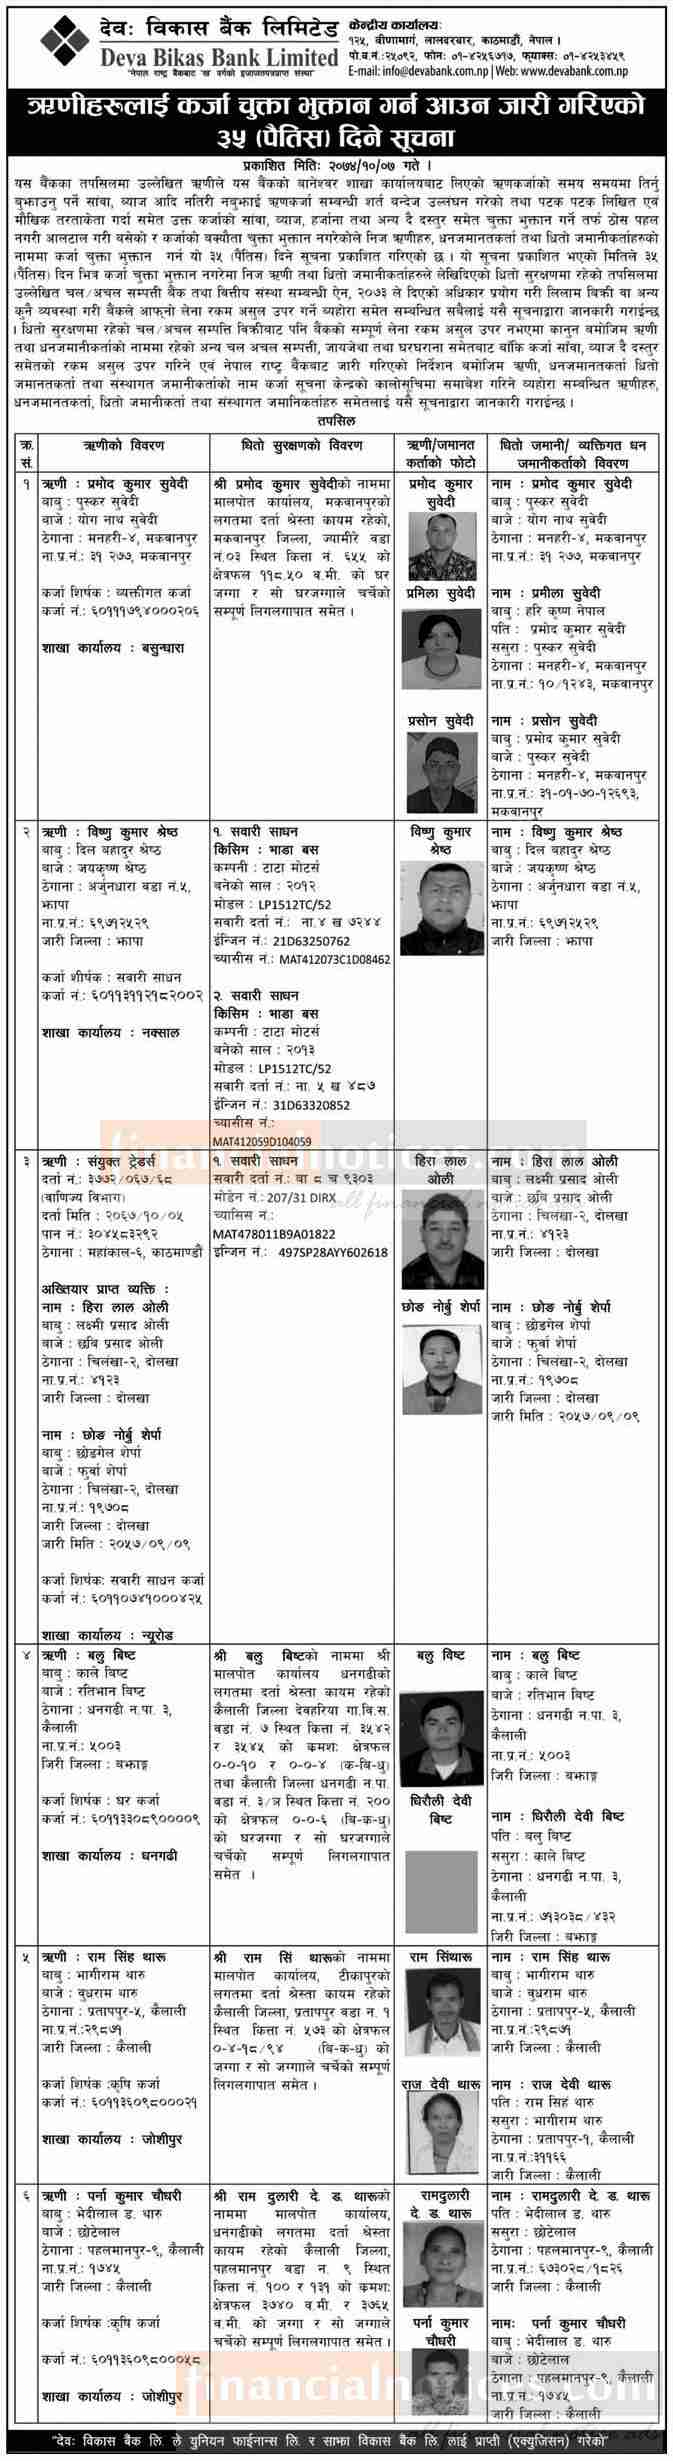 देवः विकास बैंक लिमिटेड
Deva Bikas Bank Limited
"नेपाल राष्ट्र बैंकबाट 'ख' वर्गको इजाजतपत्रप्राप्त संस्था"
केन्द्रीय कार्यालयः
१२५, वीणामार्ग, लालदरबार, काठमाडौं, नेपाल ।
पो.ब.नं.:२५०९२, फोनः ०१-४२५६७१७, फ्याक्सः ०१-४२५३४५९
E-mail: info@devabank.com.np | Web: www.devabank.com.np
ऋणीहरुलाई कर्जा चुक्ता भुक्तान गर्न आउन जारी गरिएको
३५ (पैतिस) दिने सूचना
प्रकाशित मितिः २०७४/१०/०७ गते ।
यस बैंकका तपसिलमा उल्लेखित ऋणीले यस बैंकको बानेश्वर शाखा कार्यालयबाट लिएको ऋणकर्जाको समय समयमा तिर्नु
बुझाउनु पर्ने सांवा, व्याज आदि नतिरी नबुझाई ऋणकर्जा सम्बन्धी शर्त बन्देज उल्लंघन गरेको तथा पटक पटक लिखित एवं
मौखिक तरताकेता गर्दा समेत उक्त कर्जाको सांवा, व्याज, हर्जाना तथा अन्य दै दस्तुर समेत चुक्ता भुक्तान गर्ने तर्फ ठोस पहल
नगरी आलटाल गरी बसेको र कर्जाको बक्यौता चुक्ता भुक्तान नगरेकोले निज ऋणीहरु, धनजमानतकर्ता तथा धितो जमानीकर्ताहरुको
नाममा कर्जा चुक्ता भुक्तान गर्न यो ३५ (पैंतिस) दिने सूचना प्रकाशित गरिएको छ । यो सूचना प्रकाशित भएको मितिले ३५
(पैंतिस) दिन भित्र कर्जा चुक्ता भुक्तान नगरेमा निज ऋणी तथा धितो जमानीकर्ताहरुले लेखिदिएको धितो सुरक्षणमा रहेको तपसिलमा
उल्लेखित चल/अचल सम्पत्ती बैंक तथा वित्तीय संस्था सम्बन्धी ऐन, २०७३ ले दिएको अधिकार प्रयोग गरी लिलाम बिक्री वा अन्य
कुनै व्यवस्था गरी बैंकले आफ्नो लेना रकम असुल उपर गर्ने व्यहोरा समेत सम्बन्धित सबैलाई यसै सूचनाद्वारा जानकारी गराईन्छ
। धितो सुरक्षणमा रहेको चल/अचल सम्पत्ति विक्रीबाट पनि बैंकको सम्पूर्ण लेना रकम असुल उपर नभएमा कानुन बमोजिम ऋणी
तथा धनजमानीकर्ताको नाममा रहेको अन्य चल अचल सम्पत्ती, जायजेथा तथा घरघराना समेतबाट बाँकि कर्जा सांवा, व्याज दै दस्तुर
समेतको रकम असुल उपर गरिने एवं नेपाल राष्ट्र बैंकबाट जारी गरिएको निर्देशन बमोजिम ऋणी, धनजमानतकर्ता धितो
जमानतकर्ता तथा संस्थागत जमानीकर्ताको नाम कर्जा सूचना केन्द्रको कालोसूचिमा समावेश गरिने व्यहोरा सम्बन्धित ऋणीहरु,
धनजमानतकर्ता, धितो जमानीकर्ता तथा संस्थागत जमानिकर्ताहरु समेतलाई यसै सूचनाद्वारा जानकारी गराईन्छ ।
तपसिल
क्र.सं.
ऋणीको विवरण
धितो सुरक्षणको विवरण
ऋणी/जमानत
कर्ताको फोटो
धितो जमानी/ व्यक्तिगत धन
जमानीकर्ताको विवरण
१
ऋणी : प्रमोद कुमार सुवेदी
बाबु : पुस्कर सुवेदी
बाजे : योग नाथ सुवेदी
ठेगाना : मनहरी-४, मकवानपुर
ना.प्र.नं.: ३१ २७७, मकवानपुर
कर्जा शिर्षक : व्यक्तीगत कर्जा
कर्जा नं.: ६०१११७९४०००२०६
शाखा कार्यालय : बसुन्धारा
श्री प्रमोद कुमार सुवेदीको नाममा
मालपोत कार्यालय, मकवानपुरको
लगतमा दर्ता श्रेस्ता कायम रहेको,
मकवानपुर जिल्ला, ज्यामीरे वडा
नं.०३ स्थित कित्ता नं. ६५५ को
क्षेत्रफल ११८.५० व.मी. को घर
जग्गा र सो घरजग्गाले चर्चेको
सम्पूर्ण लिगलगापात समेत ।
प्रमोद कुमार
सुवेदी
प्रमिला सुवेदी
प्रसोन सुवेदी
नाम : प्रमोद कुमार सुवेदी
बाबु : पुस्कर सुवेदी
बाजे : योग नाथ सुवेदी
ठेगाना : मनहरी-४, मकवानपुर
ना.प्र.नं.: ३१ २७७, मकवानपुर
नाम : प्रमीला सुवेदी
बाबु : हरि कृष्ण नेपाल
पति : प्रमोद कुमार सुवेदी
ससुरा : पुस्कर सुवेदी
ठेगाना : मनहरी-४, मकवानपुर
ना.प्र.नं.: १०/१२४३, मकवानपुर
नाम : प्रसोन सुवेदी
बाबु : प्रमोद कुमार सुवेदी
बाजे : पुस्कर सुवेदी
ठेगाना : मनहरी-४, मकवानपुर
ना.प्र.नं.: ३१-०१-७०-१२६९३,
मकवानपुर
२
ऋणी : विष्णु कुमार श्रेष्ठ
बाबु : दिल बहादुर श्रेष्ठ
बाजे : जयकृष्ण श्रेष्ठ
ठेगाना : अर्जुनधारा वडा नं.५,
झापा
ना.प्र.नं.: ६९७१२५२९
जारी जिल्ला : झापा
कर्जा शीर्षक : सवारी साधन
कर्जा नं.: ६०११३११२१८२००२
शाखा कार्यालय : नक्साल
१. सवारी साधन
किसिम : भाडा बस
कम्पनी : टाटा मोटर्स
बनेको साल : २०१२
मोडल : LP1512TC/52
सवारी दर्ता नं.: ना.४ ख ७२४४
ईन्जिन नं.: 21D63250762
च्यासीस नं.: MAT412073C1D08462
२. सवारी साधन
किसिम : भाडा बस
कम्पनी : टाटा मोटर्स
बनेको साल : २०१३
मोडल : LP1512TC/52
सवारी दर्ता नं.: ना. ५ ख ४८७
ईन्जिन नं.: 31D63320852
च्यासीस नं.:
MAT412059D104059
विष्णु कुमार
श्रेष्ठ
नाम : विष्णु कुमार श्रेष्ठ
बाबु : दिल बहादुर श्रेष्ठ
बाजे : जयकृष्ण श्रेष्ठ
ठेगाना : अर्जुनधारा वडा नं.५,
झापा
ना.प्र.नं.: ६९७१२५२९
जारी जिल्ला : झापा
financialnotices.com
all financial notices
३
ऋणी : संयुक्त ट्रेडर्स
दर्ता नं.: ३७७२/०६७/६८
(वाणिज्य विभाग)
दर्ता मिति : २०६७/१०/०५
पान नं.: ३०४५८३२९२
ठेगाना : महांकाल-६, काठमाण्डौं
अख्तियार प्राप्त व्यक्ति :
नाम : हिरा लाल ओली
बाबु : लक्ष्मी प्रसाद ओली
बाजे : छबि प्रसाद ओली
ठेगाना : चिलंखा-२, दोलखा
ना.प्र.नं.: ४१२३
जारी जिल्ला : दोलखा
नाम : छोङ नोर्बु शेर्पा
बाबु : छोडगेल शेर्पा
बाजे : फुर्वा शेर्पा
ठेगाना : चिलंखा-२, दोलखा
ना.प्र.नं.: १९७०८
जारी जिल्ला : दोलखा
जारी मिति : २०५७/०९/०९
कर्जा शिर्षकः सवारी साधन कर्जा
कर्जा नं.: ६०११०७४१०००४२५
शाखा कार्यालय : न्यूरोड
१. सवारी साधन
सवारी दर्ता नं.: बा ८ च ९३०३
मोडेन नं.: 207/31 DIRX
च्यासिस नं.:
MAT478011B9A01822
इन्जिन नं.: 497SP28AYY602618
हिरा लाल
ओली
छोङ नोर्बु शेर्पा
नाम : हिरा लाल ओली
बाबु : लक्ष्मी प्रसाद ओली
बाजे : छबि प्रसाद ओली
ठेगाना : चिलंखा-२, दोलखा
ना.प्र.नं.: ४१२३
जारी जिल्ला : दोलखा
नाम : छोङ नोर्बु शेर्पा
बाबु : छोडगेल शेर्पा
बाजे : फुर्वा शेर्पा
ठेगाना : चिलंखा-२, दोलखा
ना.प्र.नं.: १९७०८
जारी जिल्ला : दोलखा
जारी मिति : २०५७/०९/०९
४
ऋणी : बलु बिष्ट
बाबु : काले विष्ट
बाजे : रतिभान बिष्ट
ठेगाना : धनगढी न.पा. ३,
कैलाली
ना.प्र.नं.: ५००३
जिरी जिल्ला : बझाङ्ग
कर्जा शिर्षक : घर कर्जा
कर्जा नं.: ६०११३३०८९००००९
शाखा कार्यालय : धनगढी
श्री बलु बिष्टको नाममा श्री
मालपोत कार्यालय धनगढीको
लगतमा दर्ता श्रेस्ता कायम रहेको
कैलाली जिल्ला देवहरिया गा.वि.स.
वडा नं. ७ स्थित कित्ता नं. ३५४२
र ३५४५ को क्रमशः क्षेत्रफल
०-०-१० र ०-०-४ (क-बि-धु)
तथा कैलाली जिल्ला धनगढी न.पा.
वडा नं. ३/ञ स्थित कित्ता नं. २००
को क्षेत्रफल ०-०-६ (बि-क-धु)
को घरजग्गा र सो घरजग्गाले
चर्चेको सम्पूर्ण लिगलगापात
समेत ।
बलु विष्ट
धिरौली देवी
बिष्ट
नाम : बलु बिष्ट
बाबु : काले बिष्ट
बाजे : रतिभान बिष्ट
ठेगाना : धनगढी न.पा. ३,
कैलाली
ना.प्र.नं.: ५००३
जिरी जिल्ला : बझाङ्ग
नाम : धिरौली देवी बिष्ट
पति : बलु बिष्ट
ससुरा : काले बिष्ट
ठेगाना : धनगढी न.पा. ३,
कैलाली
ना.प्र.नं.: ७१३०३८/४३२
जिरी जिल्ला : बझाङ्ग
५
ऋणी : राम सिंह थारू
बाबु : भागीराम थारु
बाजे : वुधराम थारु
ठेगाना : प्रतापपुर-५, कैलाली
ना.प्र.नं.:२९८७१
जारी जिल्ला : कैलाली
कर्जा शिर्षक :कृषि कर्जा
कर्जा नं.: ६०११३६०९८०००२१
शाखा कार्यालय : जोशीपुर
श्री राम सिं थारूको नाममा
मालपोत कार्यालय, टीकापुरको
लगतमा दर्ता श्रेस्ता कायम रहेको
कैलाली जिल्ला, प्रतापपुर वडा नं. १
स्थित कित्ता नं. ५७३ को क्षेत्रफल
०-४-१८/९४ (बि-क-धु) को
जग्गा र सो जग्गााले चर्चेको सम्पूर्ण
लिगलगापात समेत ।
राम सिंथारू
राज देवी थारू
नाम : राम सिंह थारू
बाबु : भागीराम थारु
बाजे : वुधराम थारु
ठेगाना : प्रतापपुर-५, कैलाली
ना.प्र.नं.:२९८७१
जारी जिल्ला : कैलाली
नाम : राज देवी थारू
पति : राम सिहं थारु
ससुरा : भागीराम थारु
ठेगाना : प्रतापपुर-१, कैलाली
ना.प्र.नं.:३११६६
जारी जिल्ला : कैलाली
६
ऋणी : पर्ना कुमार चौधरी
बाबु : भेदीलाल ड. थारु
बाजे : छोटेलाल
ठेगाना : पहलमानपुर-९, कैलाली
ना.प्र.नं.: १७४५
जारी जिल्ला : कैलाली
कर्जा शिर्षक :कृषि कर्जा
कर्जा नं.: ६०११३६०९८०००५८
शाखा कार्यालय : जोशीपुर
श्री राम दुलारी दे. ड. थारूको
नाममा मालपोत कार्यालय,
धनगढीको लगतमा दर्ता श्रेस्ता
कायम रहेको कैलाली जिल्ला,
पहलमानपुर वडा नं. ९ स्थित
कित्ता नं. १०० र १३१ को क्रमशः
क्षेत्रफल ३७४० व.मी. र ३७६५
व.मी. को जग्गा र सो जग्गाले
चर्चेको सम्पूर्ण लिगलगापात समेत ।
रामदुलारी
दे. ड. थारू
पर्ना कुमार
चौधरी
नाम : रामदुलारी दे. ड. थारू
पति : भेदीलाल ड. थारु
ससुरा : छोटेलाल
ठेगाना : पहलमानपुर-९, कैलाली
ना.प्र.नं.: ६७३०२८/१८२६
जारी जिल्ला : कैलाली
नामः पर्ना कुमार चौधरी
बाबु : भेदीलाल ड. थारु
बाजे : छोटेलाल
ठेगाना : पहलमानपुर-९, कैलाली
ना.प्र.नं.: १७४५
जारी जिल्ला : कैलाली
financialnotices.com
"देवः विकास बैंक लि. ले युनियन फाईनान्स लि. र साझा विकास बैंक लि. लाई प्राप्ती (एक्युजिसन) गरेको"